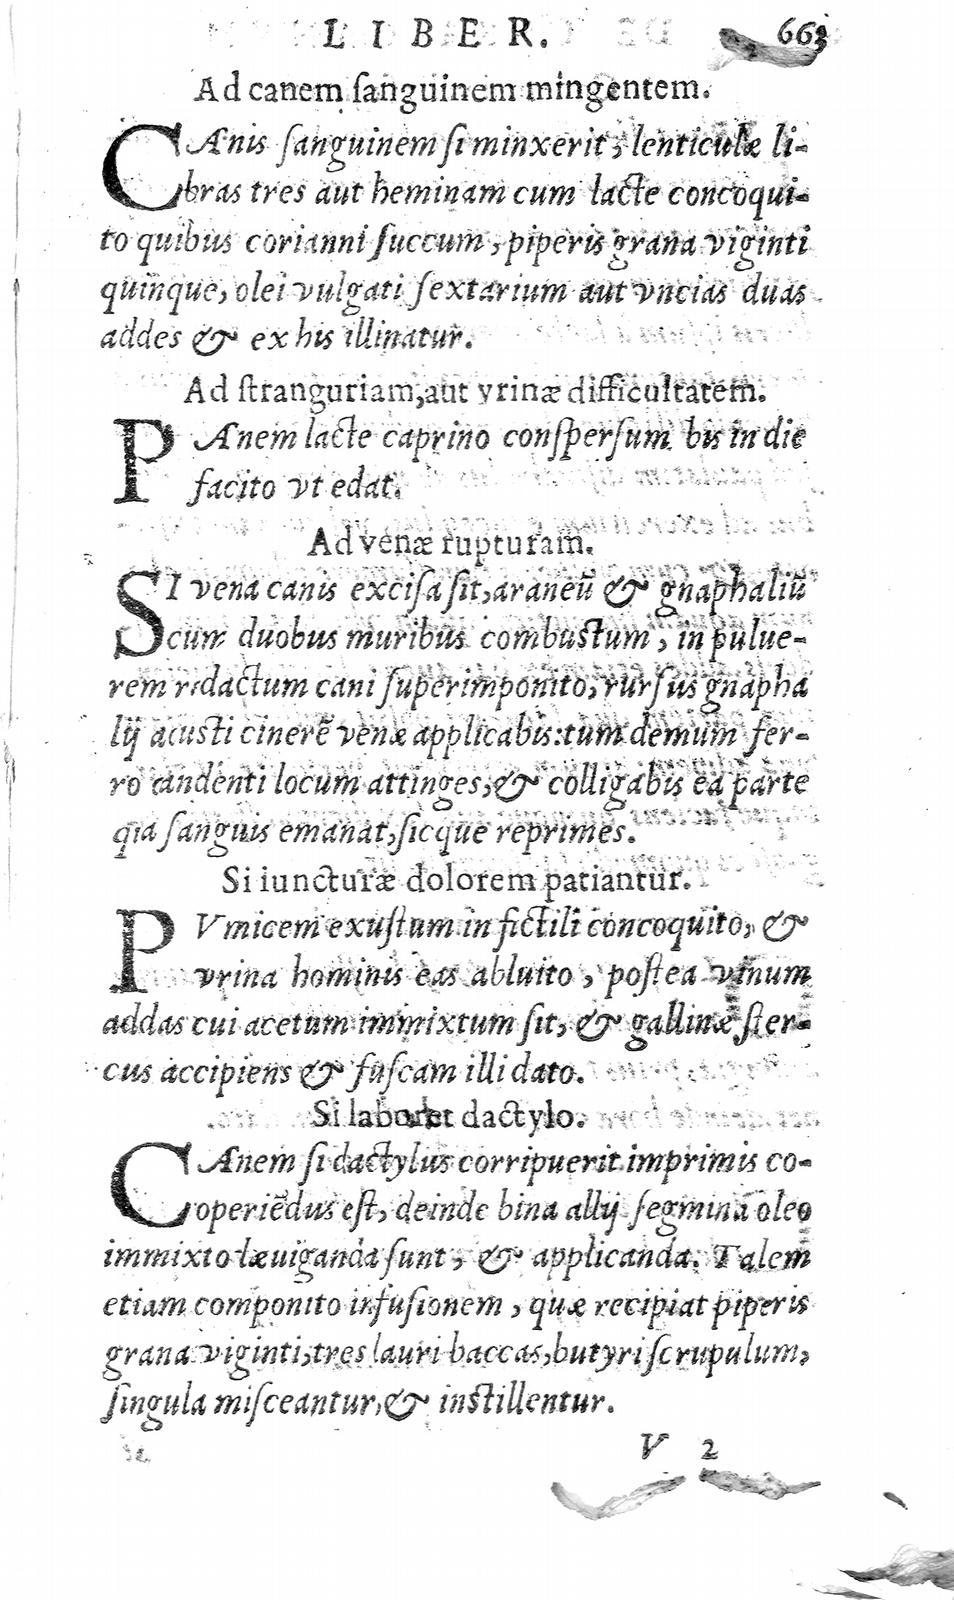 LIBER. 663
Ad canem ſanguinem mingentem.
CAnis ſanguinem ſi minxerit, lenticulæ li-
bras tres aut heminam cum lacte concoqui-
to quibus corianni ſuccum, piperis grana viginti
quinque, olei vulgati ſextarium aut vncias duas
addes & ex his illinatur.
Ad ſtranguriam, aut vrinæ difficultatem.
PAnem lacte caprino conſperſum bis in die
facito vt edat.
Ad venæ rupturam.
SI vena canis exciſa ſit, araneũ & gnaphaliũ
cum duobus muribus combustum, in pulue-
rem redactum cani ſuperimponito, rurſus gnapha
lij acusti cinerẽ venæ applicabis: tum demum fer-
ro candenti locum attinges, & colligabis ea parte
qua ſanguis emanat, ſicque reprimes.
Si iuncturæ dolorem patiantur.
PVmicem exuſtum in fictili concoquito, &
vrina hominis eas abluito, poſtea vinum
addas cui acetum immixtum ſit, & gallinæ ſter-
cus accipiens & fuſcam illi dato.
Si laboret dactylo.
CAnem ſi dactylus corripuerit imprimis co-
operiẽdus eſt, deinde bina allij ſegmina oleo
immixto læuiganda ſunt, & applicanda. Talem
etiam componito infuſionem, quæ recipiat piperis
grana viginti, tres lauri baccas, butyri ſcrupulum,
ſingula miſceantur, & instillentur.
V 2